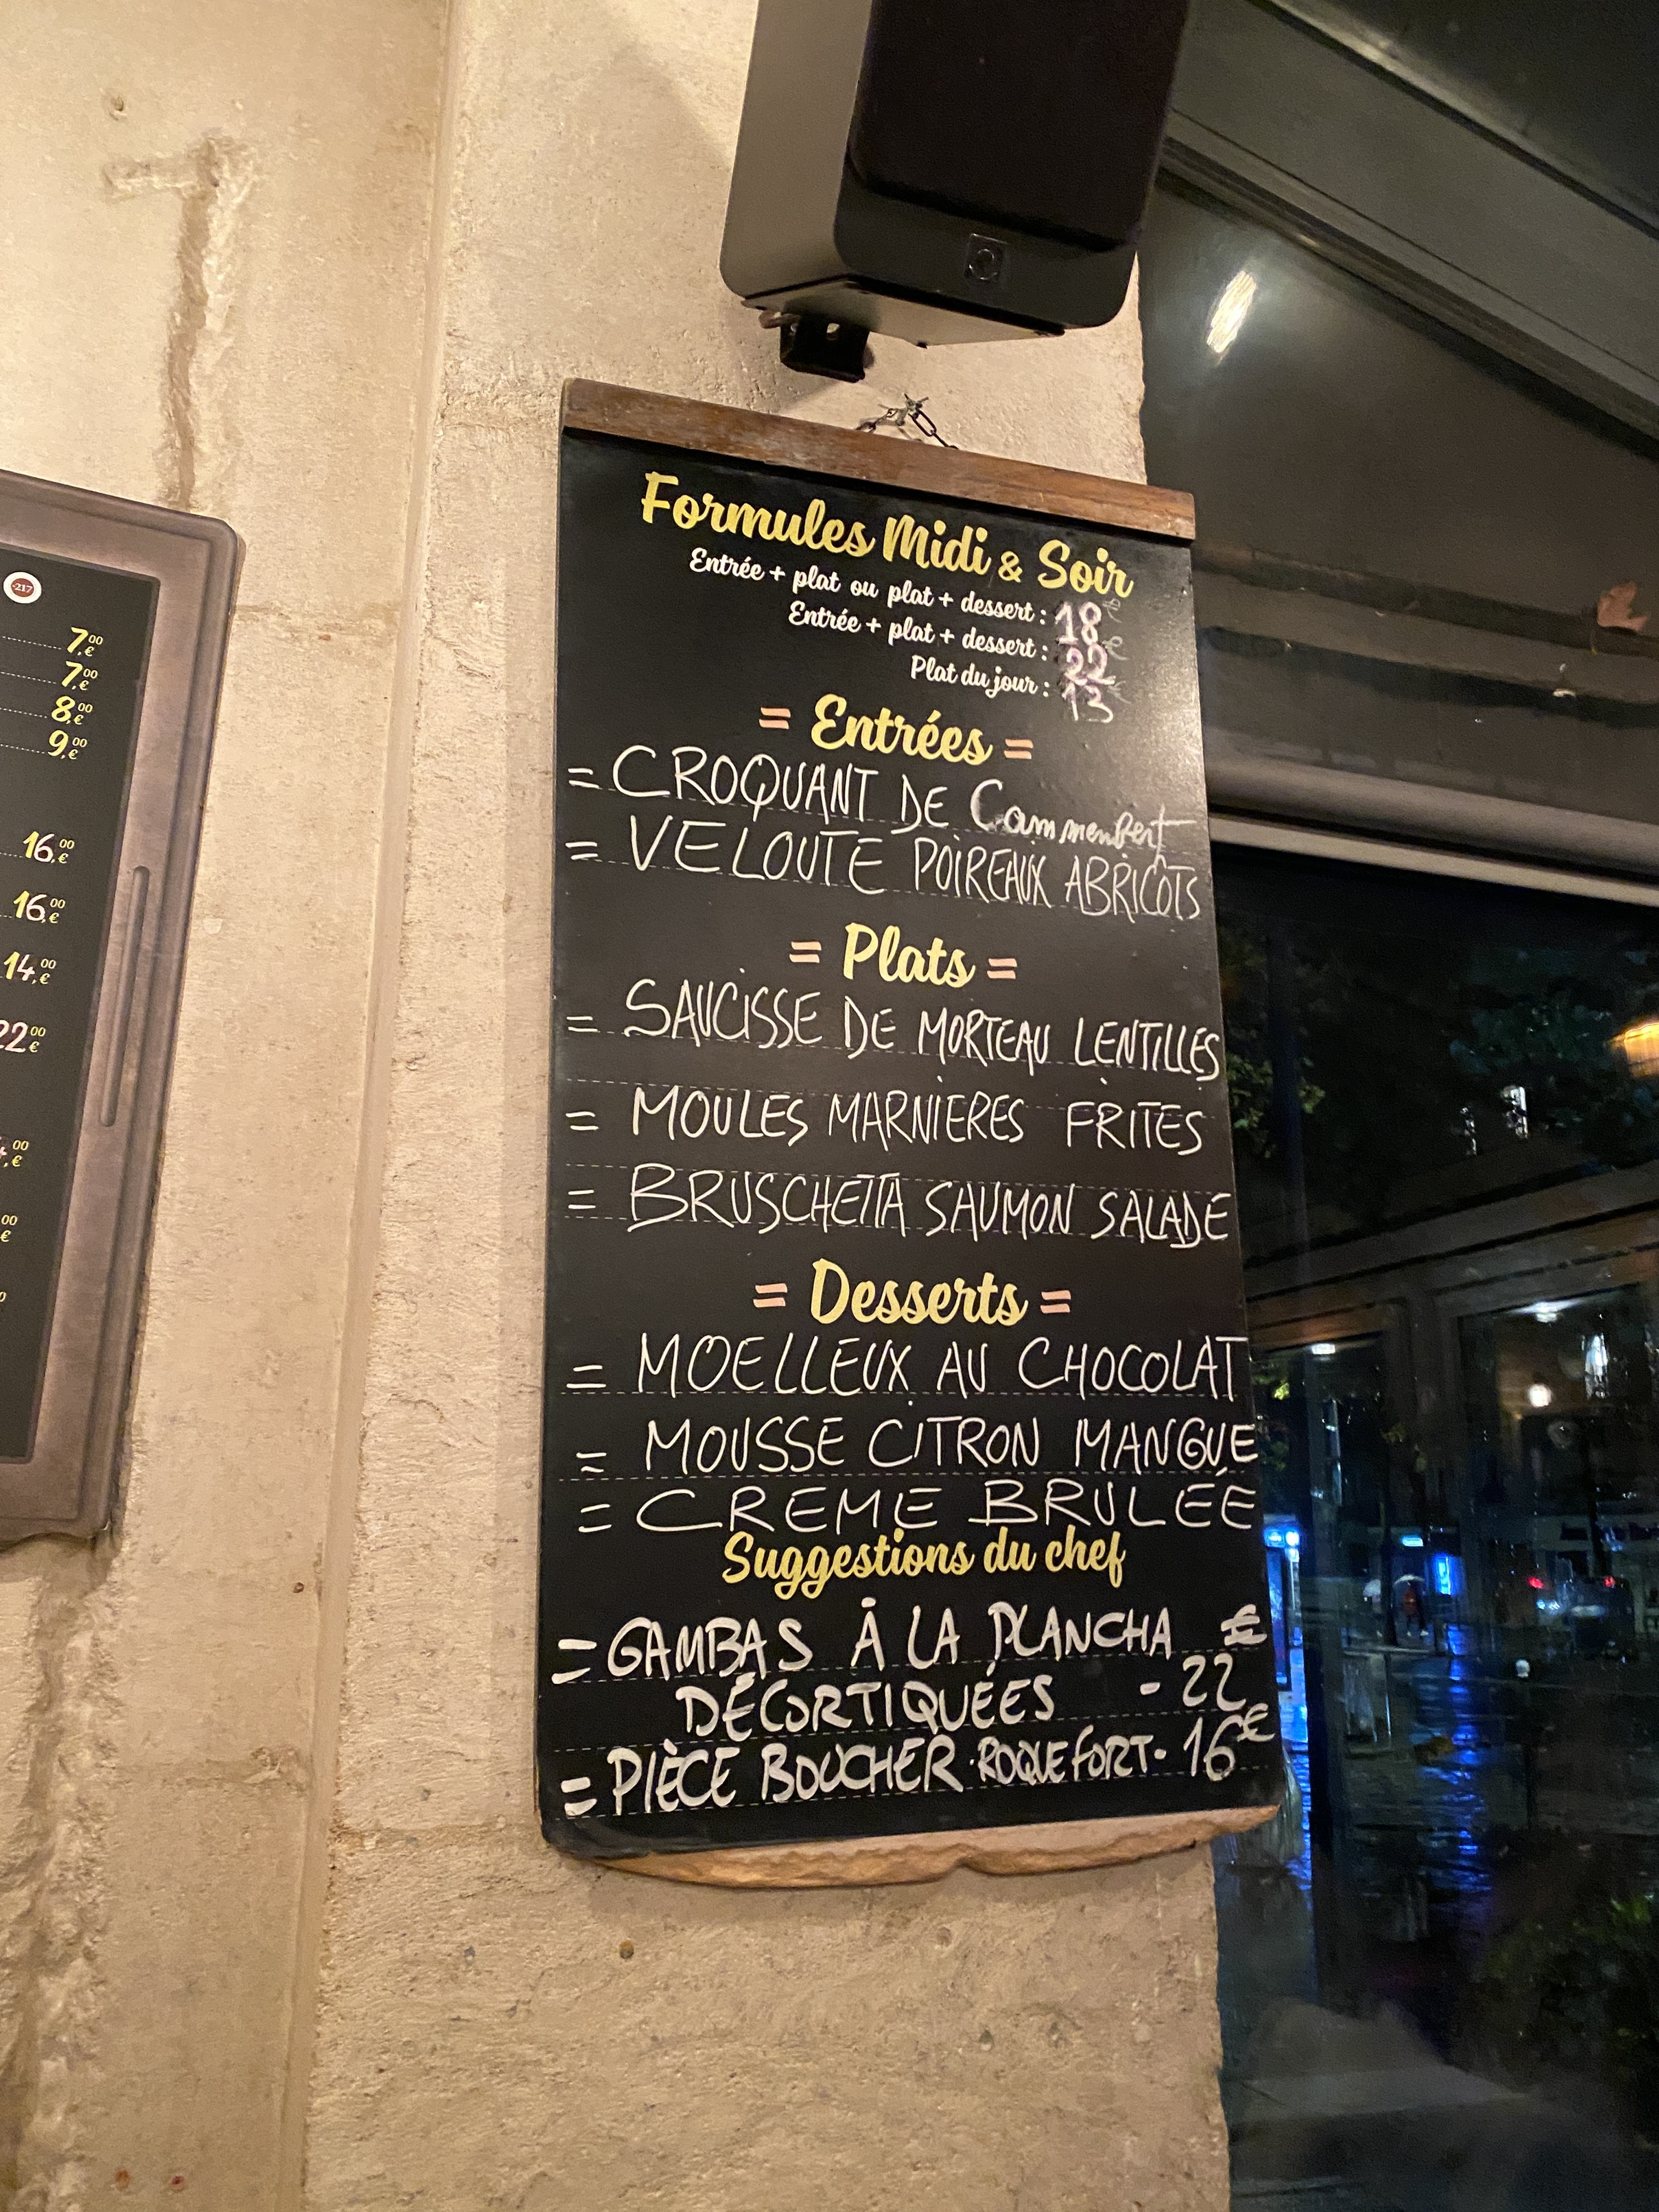 217
7,00 €
7,00 €
8,00 €
9,00 €
16,00 €
16,00 €
14,00 €
22,00 €
Formules Midi & Soir
Entrée + plat ou plat + dessert : 18€
Entrée + plat + dessert : 22€
Plat du jour : 13
= Entrées =
= CROQUANT DE Cammenbert
= VELOUTE POIREAUX ABRICOTS
= Plats =
= SAUCISSE DE MORTEAU LENTILLES
= MOULES MARNIERES FRITES
= BRUSCHETTA SAUMON SALADE
= Desserts =
= MOELLEUX AU CHOCOLAT
= MOUSSE CITRON MANGUE
= CREME BRULÉE
Suggestions du chef
= GAMBAS À LA PLANCHA €
DÉCORTIQUÉES - 22
= PIÈCE BOUCHER ROQUEFORT - 16€